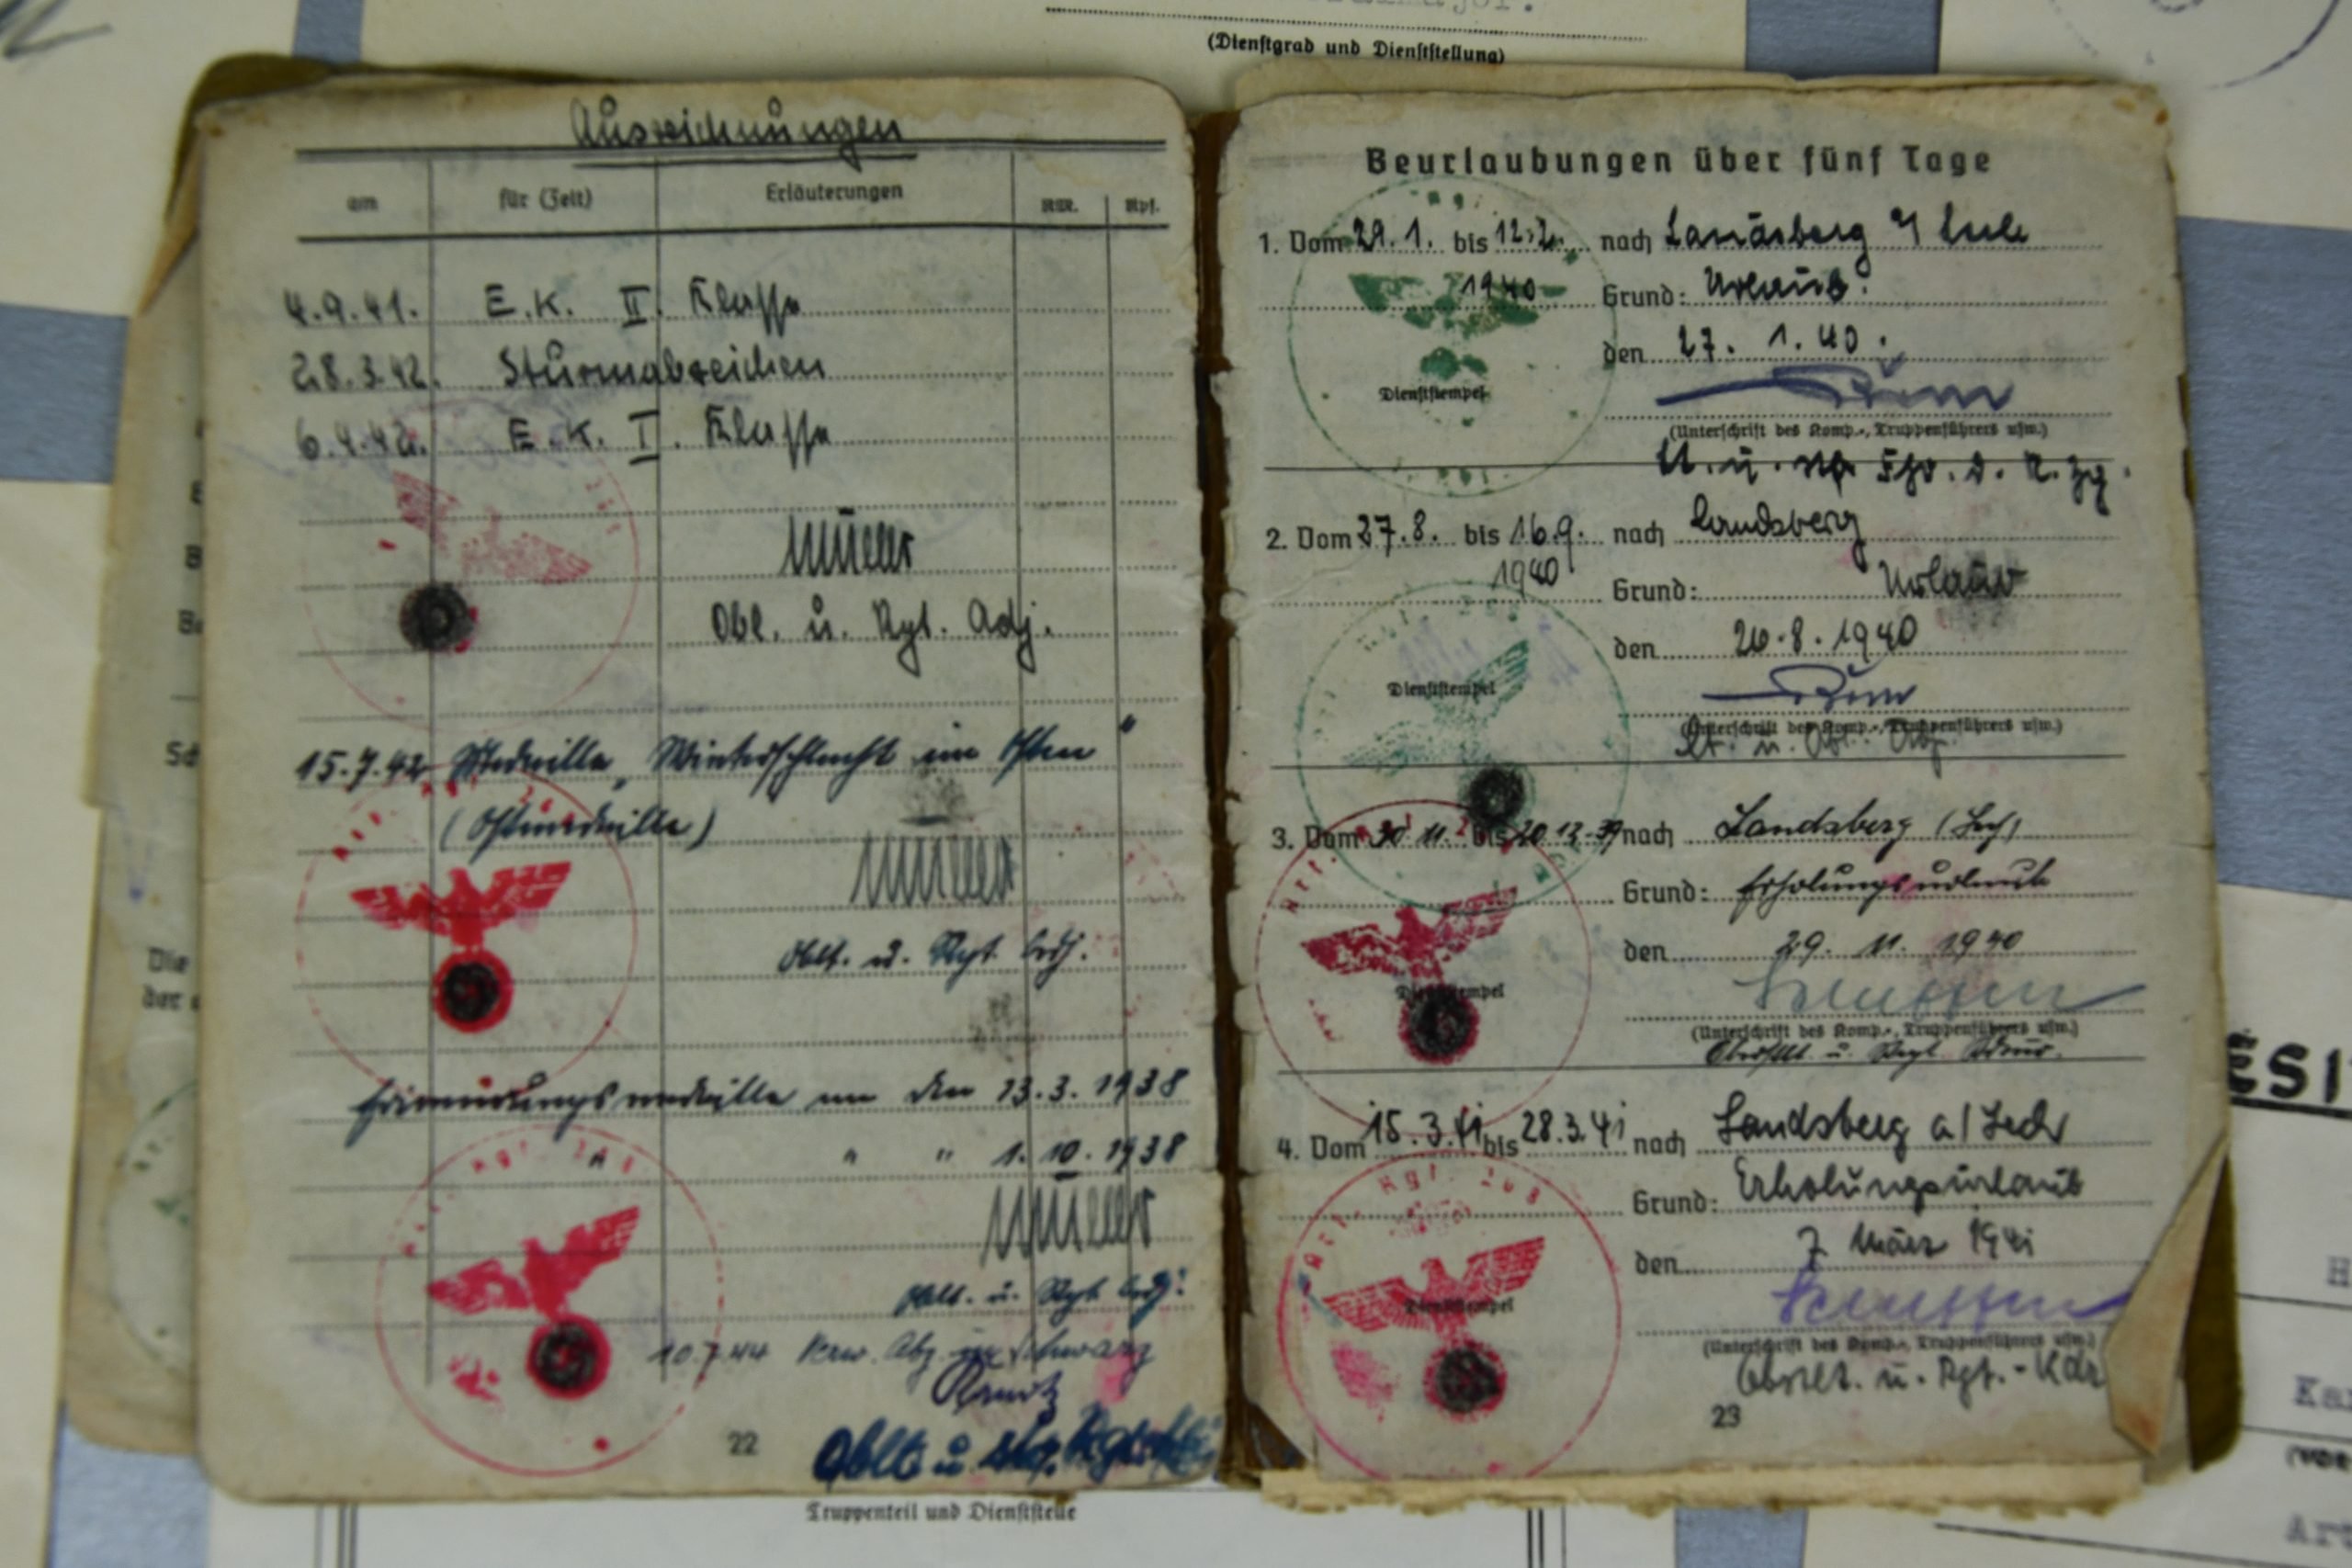 (Dienstgrad und Dienststellung)
Auszeichnungen
am für (Zeit) Erläuterungen RM. Rpf.
4.9.41. E.K. II. Klasse
28.3.42. Sturmabzeichen
6.4.42. E.K. I. Klasse
Müller
Obl. u. Rgt. Adj.
15.7.42 Medaille „Winterschlacht im Osten"
(Ostmedaille)
Müller
Oblt. u. Rgt. Adj.
Erinnerungsmedaille an den 13.3.1938
" " " 1.10.1938
Müller
Oblt. u. Rgt. Adj.
10.7.44 Verw. Abz. in Schwarz
Oblt u.
22
Truppenteil und Dienststelle
Beurlaubungen über fünf Tage
1. Vom 29.1. bis 12.2. nach Landsberg
1940 Grund: Urlaub.
den 27. 1. 40.
Dienststempel
(Unterschrift des Komp.-, Truppenführers usw.)
2. Vom 27.8. bis 16.9. nach Landsberg
1940 Grund: Urlaub
den 26.8.1940
Dienststempel
(Unterschrift des Komp.-, Truppenführers usw.)
Lt. u.
3. Vom 30 11. bis 20 12. nach Landsberg (Lech)
Grund: Erholungsurlaub
den 29. 11. 1940
Dienststempel
(Unterschrift des Komp.-, Truppenführers usw.)
Oberstlt. u. Regt.
4. Vom 15.3.41 bis 28.3.41 nach Landsberg a/Lech
Art. Rgt. 268
Grund: Erholungsurlaub
den 7. März 1941
Dienststempel
(Unterschrift des Komp.-, Truppenführers usw.)
Oberstlt. u. Rgt.-Kdr
23